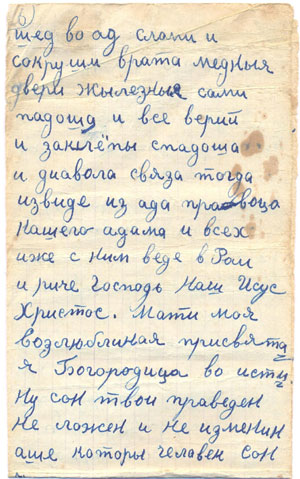 6)
шед во ад слати и
сокруши врата медныя
двери жылезные сами
падоша и все верий
и заклёпы спадоша
и диавола связа тогда
извиде из ада праоца
нашего адама и всех
иже с ним веде в Раи
и риче Господь Наш Исус
Христос. Мати моя
возлюблиная присвята
я Богородица во исти
ну сон твои праведен
не ложен и не изменин
аще которы человен сон